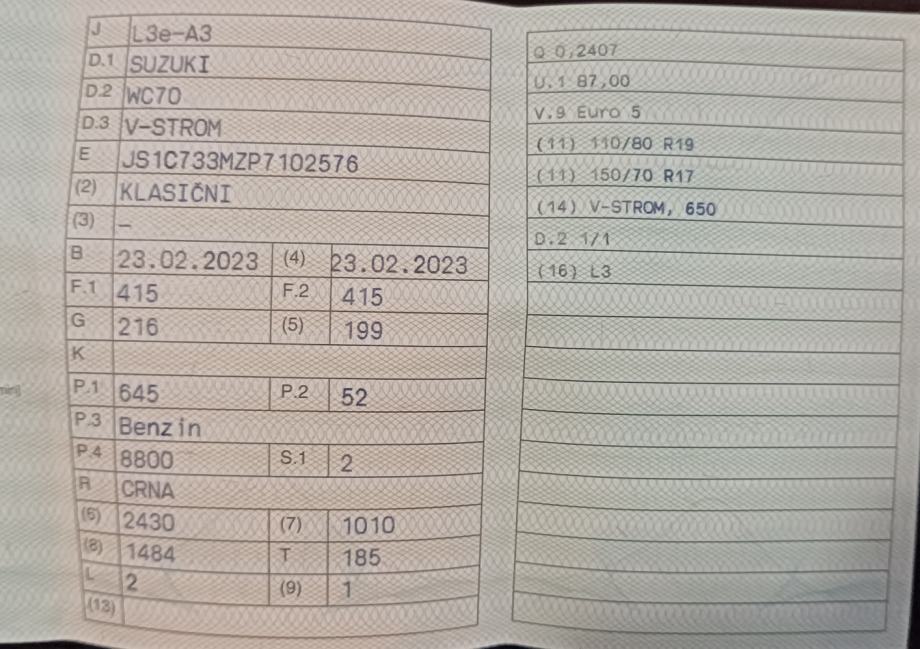 J L3e-A3
D.1 SUZUKI
D.2 WC70
D.3 V-STROM
E JS1C733MZP7102576
(2) KLASIČNI
(3) –
B 23.02.2023 (4) 23.02.2023
F.1 415 F.2 415
G 216 (5) 199
K
P.1 645 P.2 52
P.3 Benzin
P.4 8800 S.1 2
R CRNA
(6) 2430 (7) 1010
(8) 1484 T 185
L 2 (9) 1
(13)
Q 0,2407
U.1 87,00
V.9 Euro 5
(11) 110/80 R19
(11) 150/70 R17
(14) V-STROM, 650
D.2 1/1
(16) L3